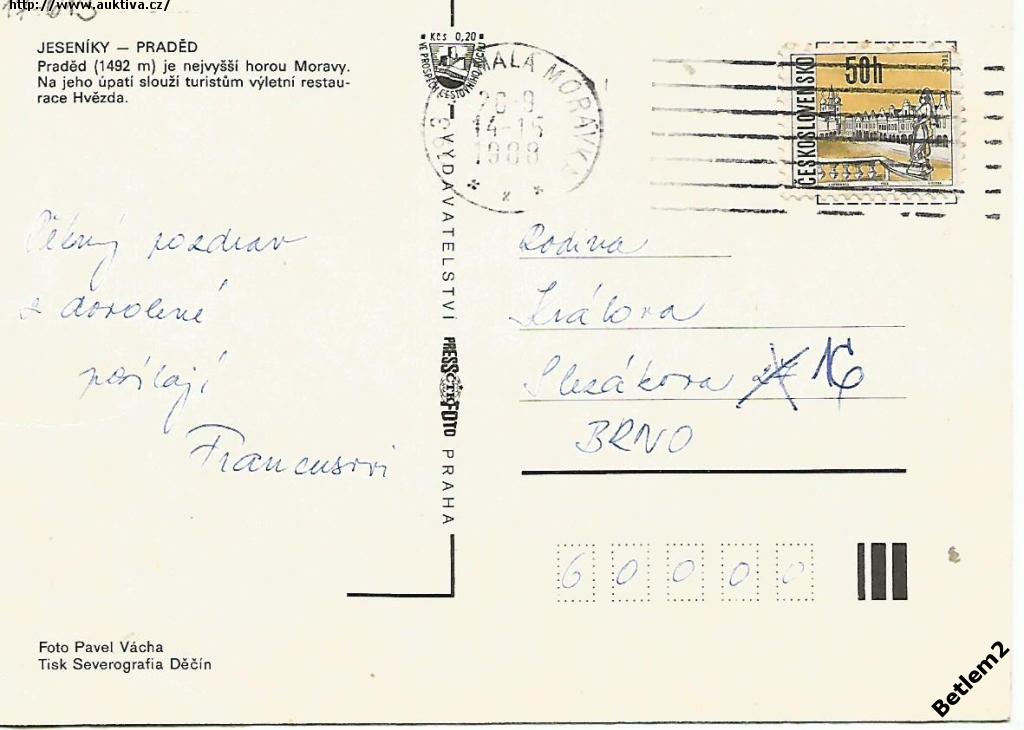 http://www.auktiva.cz/
JESENÍKY — PRADĚD
Praděd (1492 m) je nejvyšší horou Moravy.
Na jeho úpatí slouží turistům výletní restau-
race Hvězda.
Kčs 0,20
VE PROSPĚCH CESTOVNÍHO RUCHU
MALÁ MORÁVKA
20.9
14-15
1988
* * *
ČESKOSLOVENSKO
50h
Pěkný pozdrav
z dovolené
posílají
Francusovi
VYDAVATELSTVÍ PRESSFOTO PRAHA
ČTK
Rodina
Králova
Slezákova 16
BRNO
60000
Foto Pavel Vácha
Tisk Severografia Děčín
Betlem2